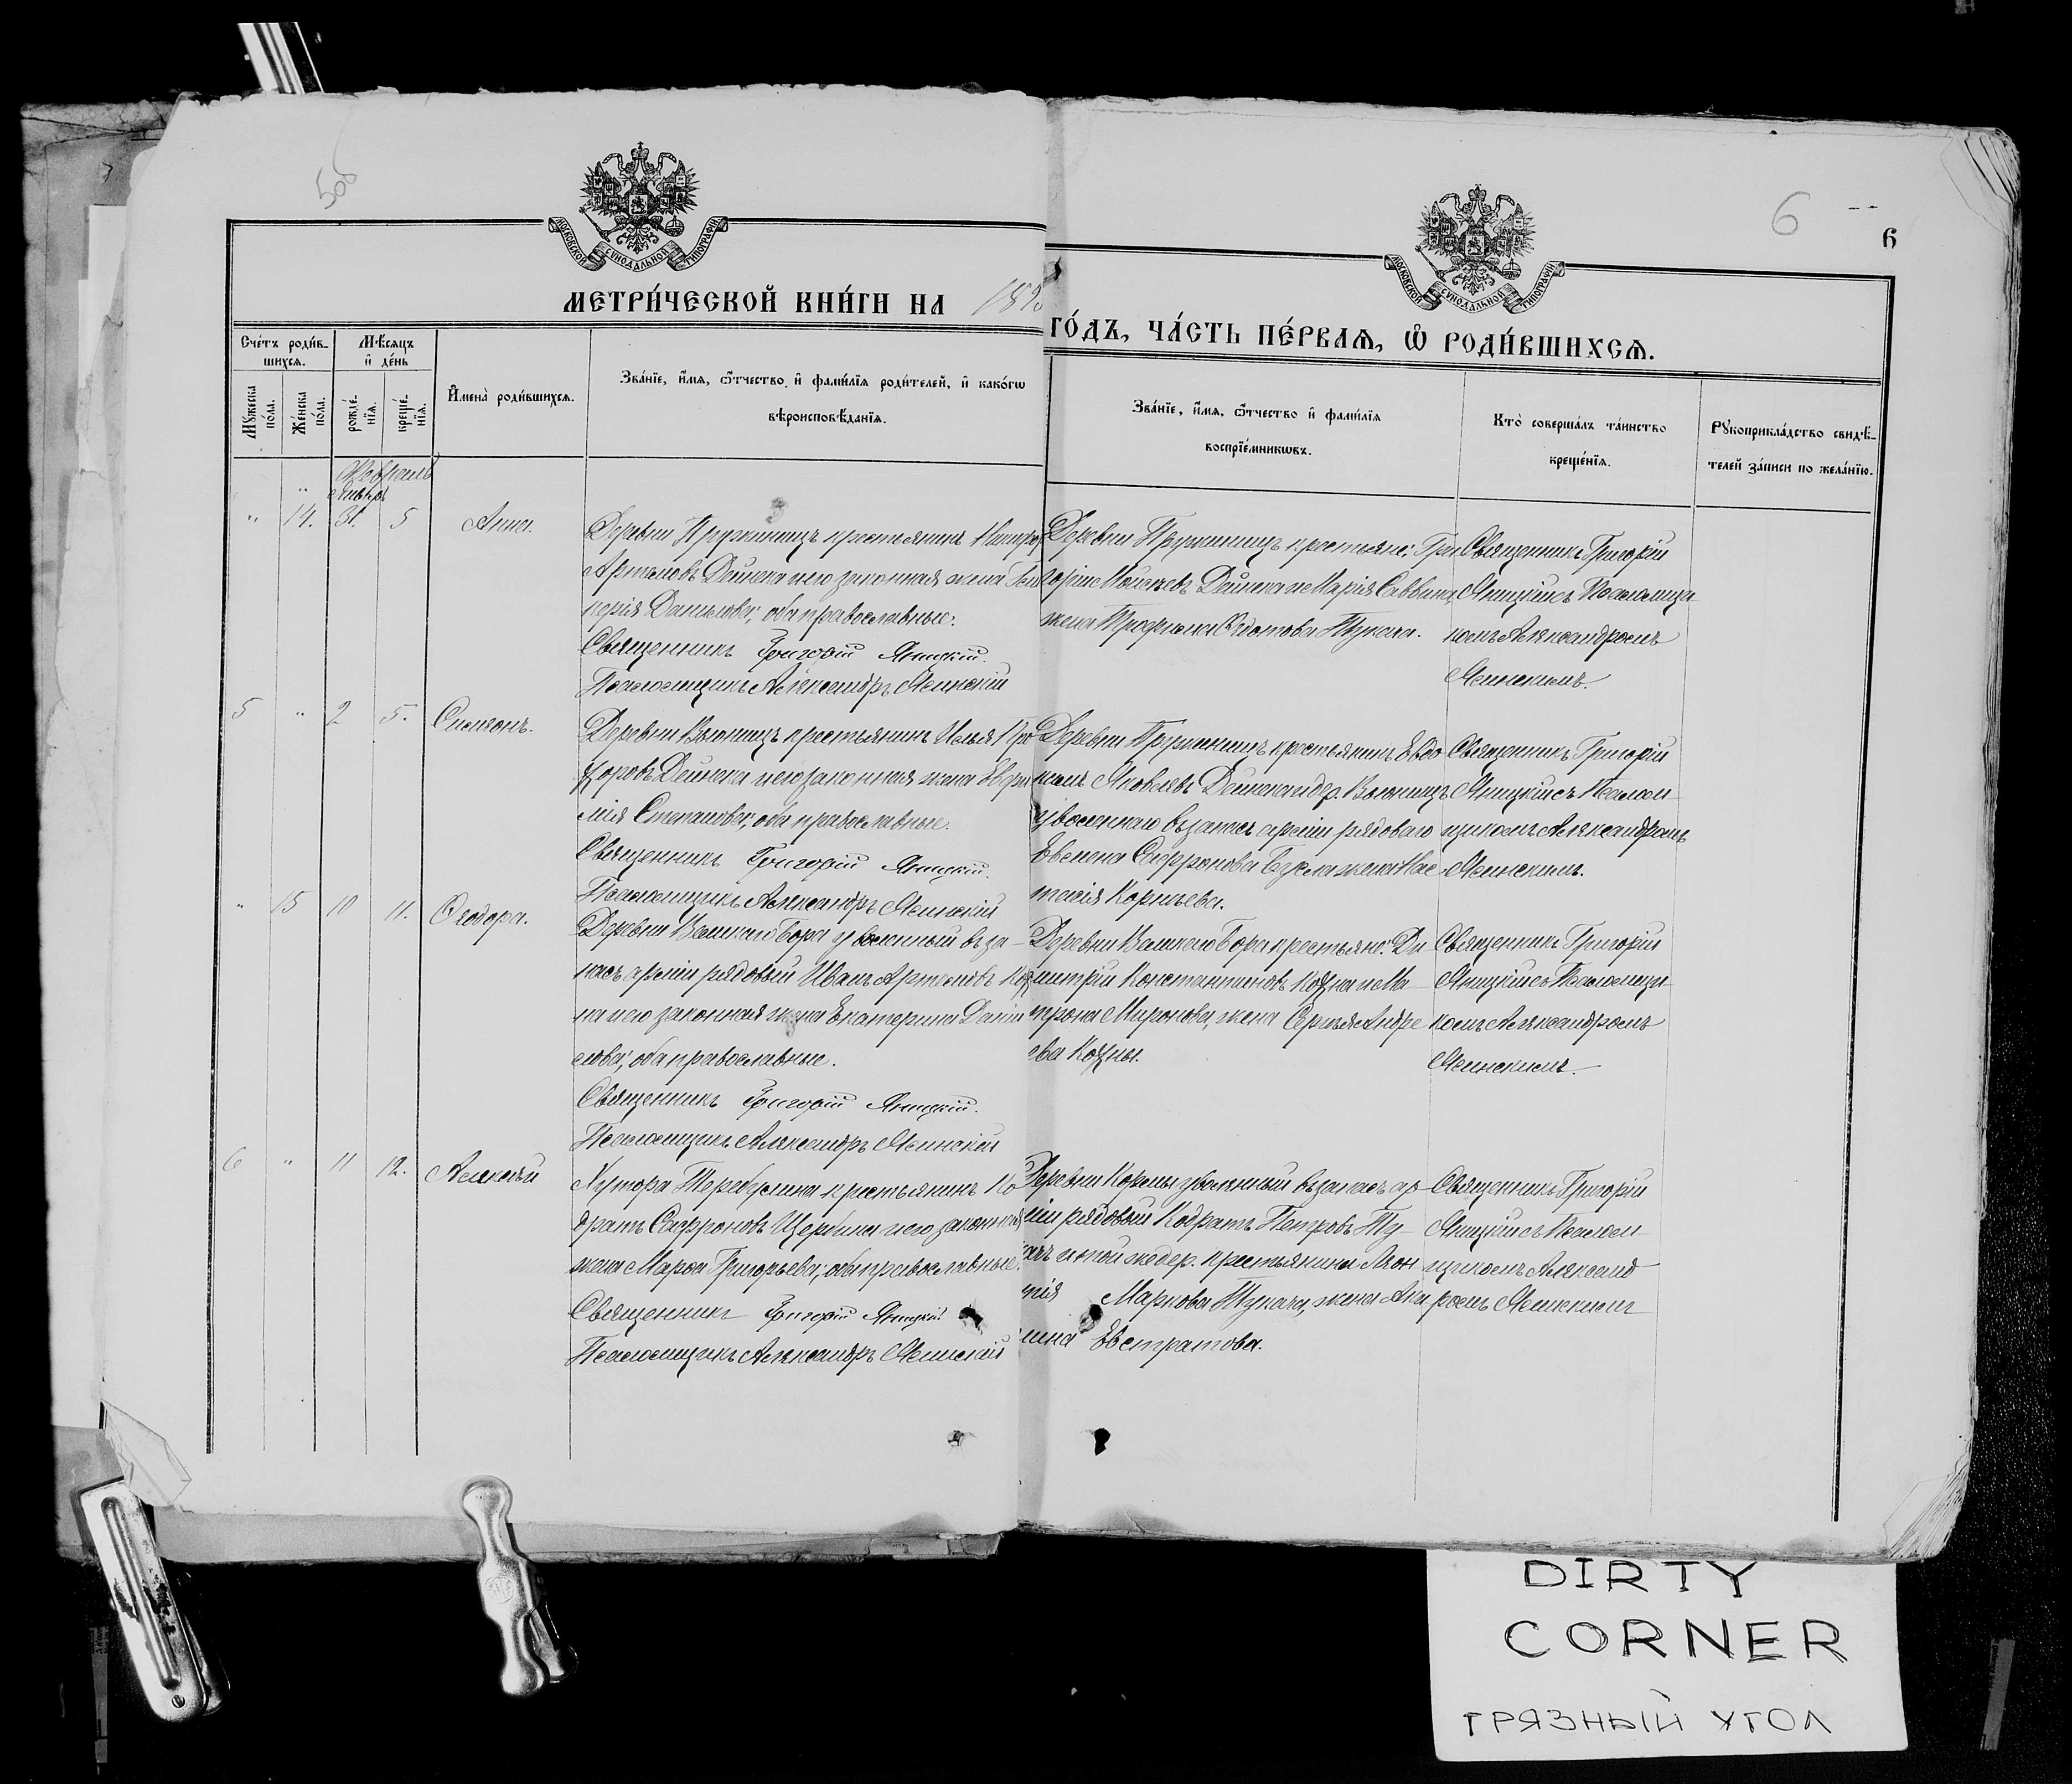 5об
6
6
МОСКОВСКОЙ СУНОДАЛЬНОЙ ТИПОГРАФІИ
МОСКОВСКОЙ СУНОДАЛЬНОЙ ТИПОГРАФІИ
МЕТРИ́ЧЕСКОЙ КНИ́ГИ НА 189
ГО́ДЪ, ЧА́СТЬ ПЕ́РВАѦ, Ѡ҆ РОДИ́ВШИХСѦ.
Сче́тъ роди́в-
шихсѧ.
Мꙋ́жеска по́ла.
Же́нска по́ла.
Мѣ́сѧцъ
и҆ де́нь
рожде́-
нїѧ.
креще́-
нїѧ.
И҆мена̀ роди́вшихсѧ.
Зва́нїе, и҆́мѧ, ѻ҆́тчество, и҆ фами́лїѧ роди́телей, и҆ како́гѡ
вѣроисповѣ́данїѧ.
Зва́нїе, и҆́мѧ, ѻ҆́тчество и҆ фами́лїѧ
воспрїе́мникѡвъ.
Кто̀ соверша́лъ та́инство
креще́нїѧ.
Рꙋкоприкла́дство свидѣ́-
телей за́писи по жела́нїю.
Февраль
Январ
" 14. 31. 5 Анна.
Деревни Пружиницъ крестьянинъ
Артемовъ Дейнека и его законная жена
керія Данилова, оба православные.
Священникъ Григорій Яницкій.
Псаломщикъ Александръ Ясинскій
Деревни Пружиницъ крестьяне: Гри
горій Моисеевъ Дейнека и Марія Саввина,
жена Трофима Федотова Тукача.
Священникъ Григорій
Яницкій съ Псаломщи
комъ Александромъ
Ясинскимъ.
5 " 2 5. Симеонъ.
Деревни Вьюнищъ крестьянинъ Илья
Дейнека и его законная жена Евфи
мія Степанова, оба православные.
Священникъ Григорій Яницкій.
Псаломщикъ Александръ Ясинскій
Деревни Пружиницъ крестьянинъ Евдо
кимъ Яковлевъ Дейнека и дер. Вьюнищъ
уволеннаго въ запасъ арміи рядоваго
Сафронова жена Нас
тасія Корнеева.
Священникъ Григорій
Яницкій съ Псалом-
щикомъ Александромъ
Ясинскимъ.
" 15 10 11. Ѳеодора.
Деревни Великаго Бора уволенный въ за-
пасъ арміи рядовый Иванъ Артемовъ
на и его законная жена Екатерина Дании
лова, оба православные.
Священникъ Григорій Яницкій.
Псаломщикъ Александръ Ясинскій
Деревни Великаго Бора крестьяне: Ди
митрій Константиновъ и Ма-
трона Миронова, жена Сергея Андре
ева
Священникъ Григорій
Яницкій съ Псаломщи-
комъ Александромъ
Ясинскимъ.
6 " 11 12. Алексѣй
Хутора Теребулина крестьянинъ Ко
дратъ Сафроновъ Щербина и его законная
жена Марѳа Григорьева, оба православные.
Священникъ Григорій Яницкій
Псаломщикъ Александръ Ясинскій
Деревни уволенный въ запасъ ар-
міи рядовый Кодратъ Петровъ Ту-
качъ и той же дер. крестьянина Леон
тія Маркова Тукача, жена Аку
лина Евстратова.
Священникъ Григорій
Яницкій съ Псалом-
щикомъ Александ
ромъ Ясинскимъ
DIRTY
CORNER
ГРЯЗНЫЙ УГОЛ